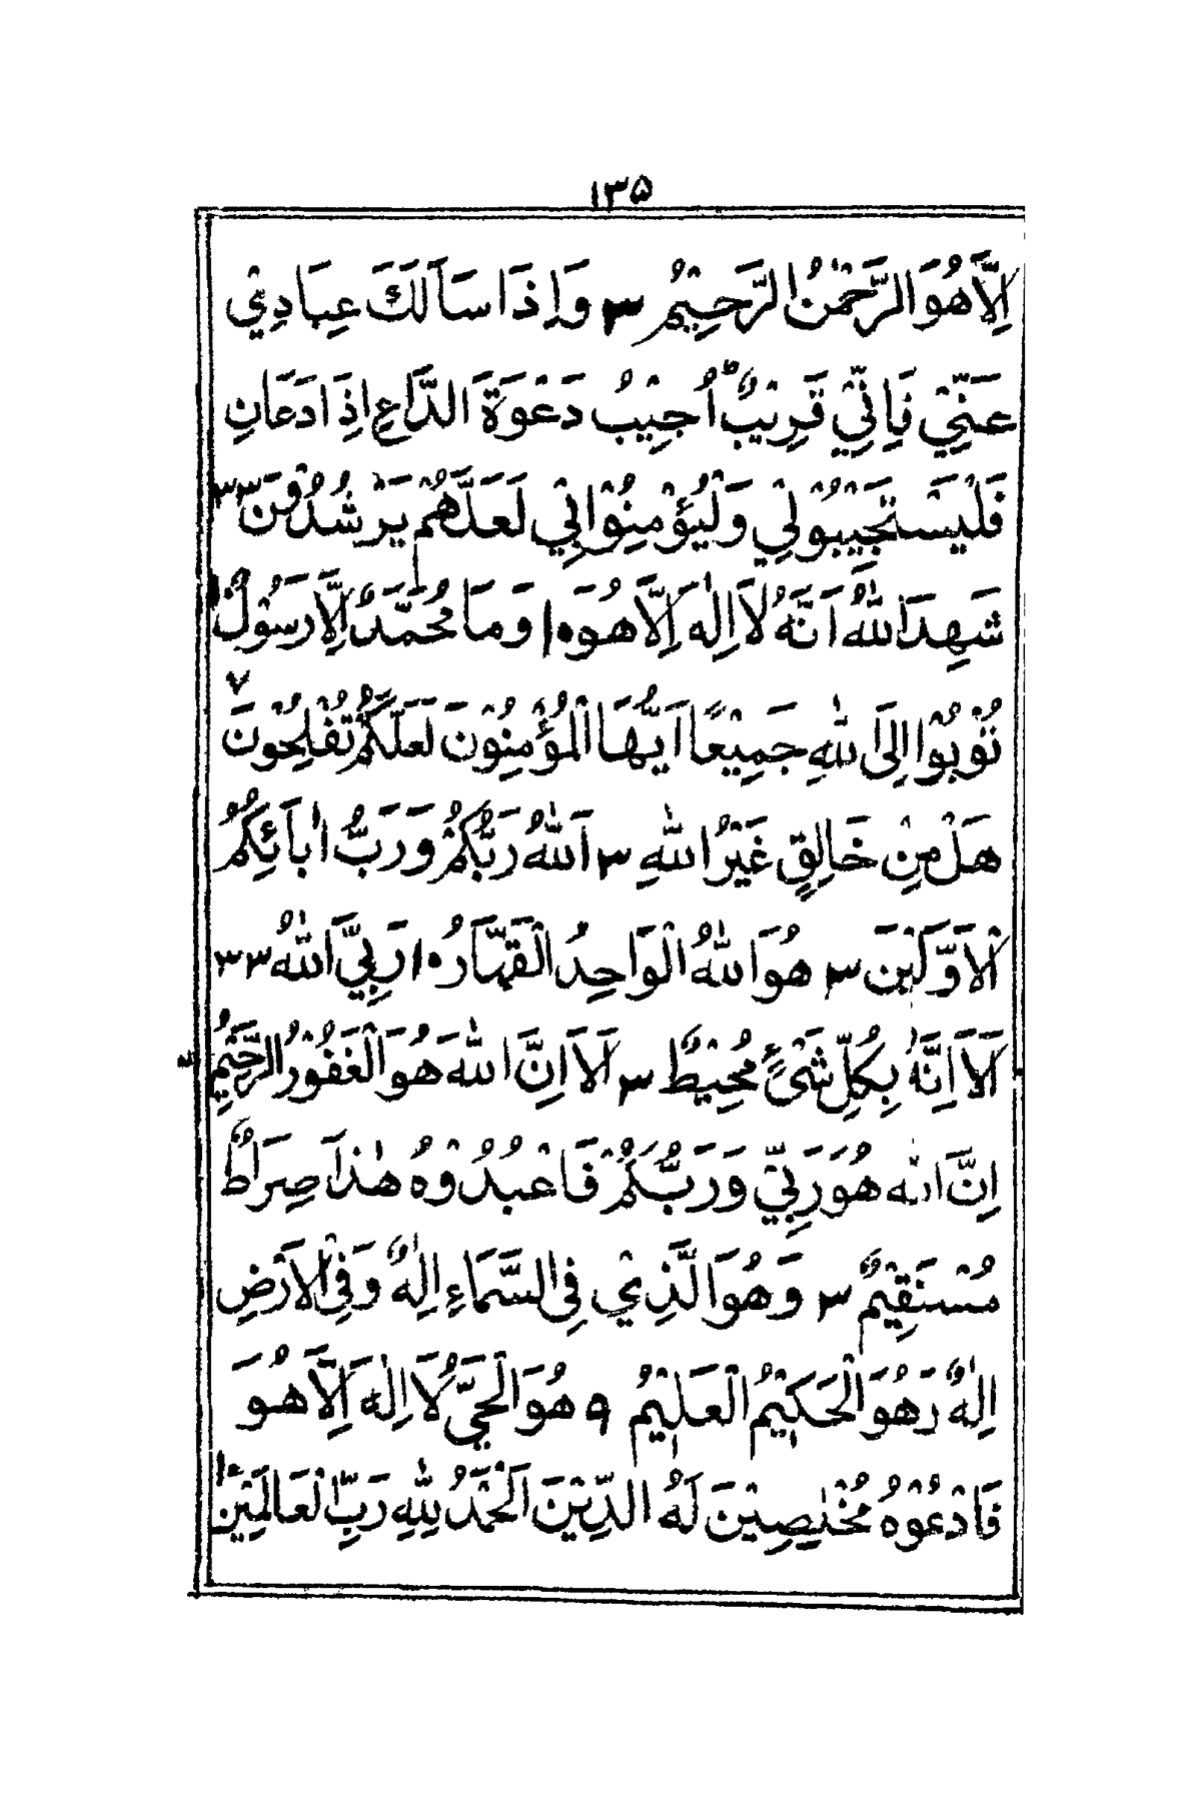 ۱۳۵
اِلَّا هُوَ الرَّحْمٰنُ الرَّحِيْمُ ۳ وَاِذَا سَاَلَكَ عِبَادِيْ
عَنِّيْ فَاِنِّيْ قَرِيْبٌ ؕ اُجِيْبُ دَعْوَةَ الدَّاعِ اِذَا دَعَانِ
فَلْيَسْتَجِيْبُوْلِيْ وَلْيُؤْمِنُوْابِيْ لَعَلَّهُمْ يَرْشُدُوْنَ ۳۳
شَهِدَ اللّٰهُ اَنَّهُ لَا اِلٰهَ اِلَّا هُوَ ۱۰ وَمَا مُحَمَّدٌ اِلَّا رَسُوْلٌ ۱۰
۷
تُوْبُوْا اِلَى اللّٰهِ جَمِيْعًا اَيُّهَا الْمُؤْمِنُوْنَ لَعَلَّكُمْ تُفْلِحُوْنَ
هَلْ مِنْ خَالِقٍ غَيْرُ اللّٰهِ ۳ اَللّٰهُ رَبُّكُمْ وَرَبُّ اٰبَآئِكُمُ
الْاَوَّلِيْنَ ۳ هُوَ اللّٰهُ الْوَاحِدُ الْقَهَّارُ ۱۰ رَبِّيَ اللّٰهُ ۳۳
اَلَا اِنَّهٗ بِكُلِّ شَيْءٍ مُحِيْطٌ ۳ اَلَا اِنَّ اللّٰهَ هُوَ الْغَفُوْرُ الرَّحِيْمُ
اِنَّ اللّٰه هُوَ رَبِّيْ وَرَبُّكُمْ فَاعْبُدُوْهُ هٰذَا صِرَاطٌ
مُسْتَقِيْمٌ ۳ وَهُوَ الَّذِيْ فِى السَّمَاءِ اِلٰهٌ وَفِى الْاَرْضِ
اِلٰهٌ وَهُوَ الْحَكِيْمُ الْعَلِيْمُ ۹ هُوَ الْحَيُّ لَا اِلٰهَ اِلَّا هُوَ
فَادْعُوْهُ مُخْلِصِيْنَ لَهُ الدِّيْنَ اَلْحَمْدُ لِلّٰهِ رَبِّ الْعَالَمِيْنَ ۱۰